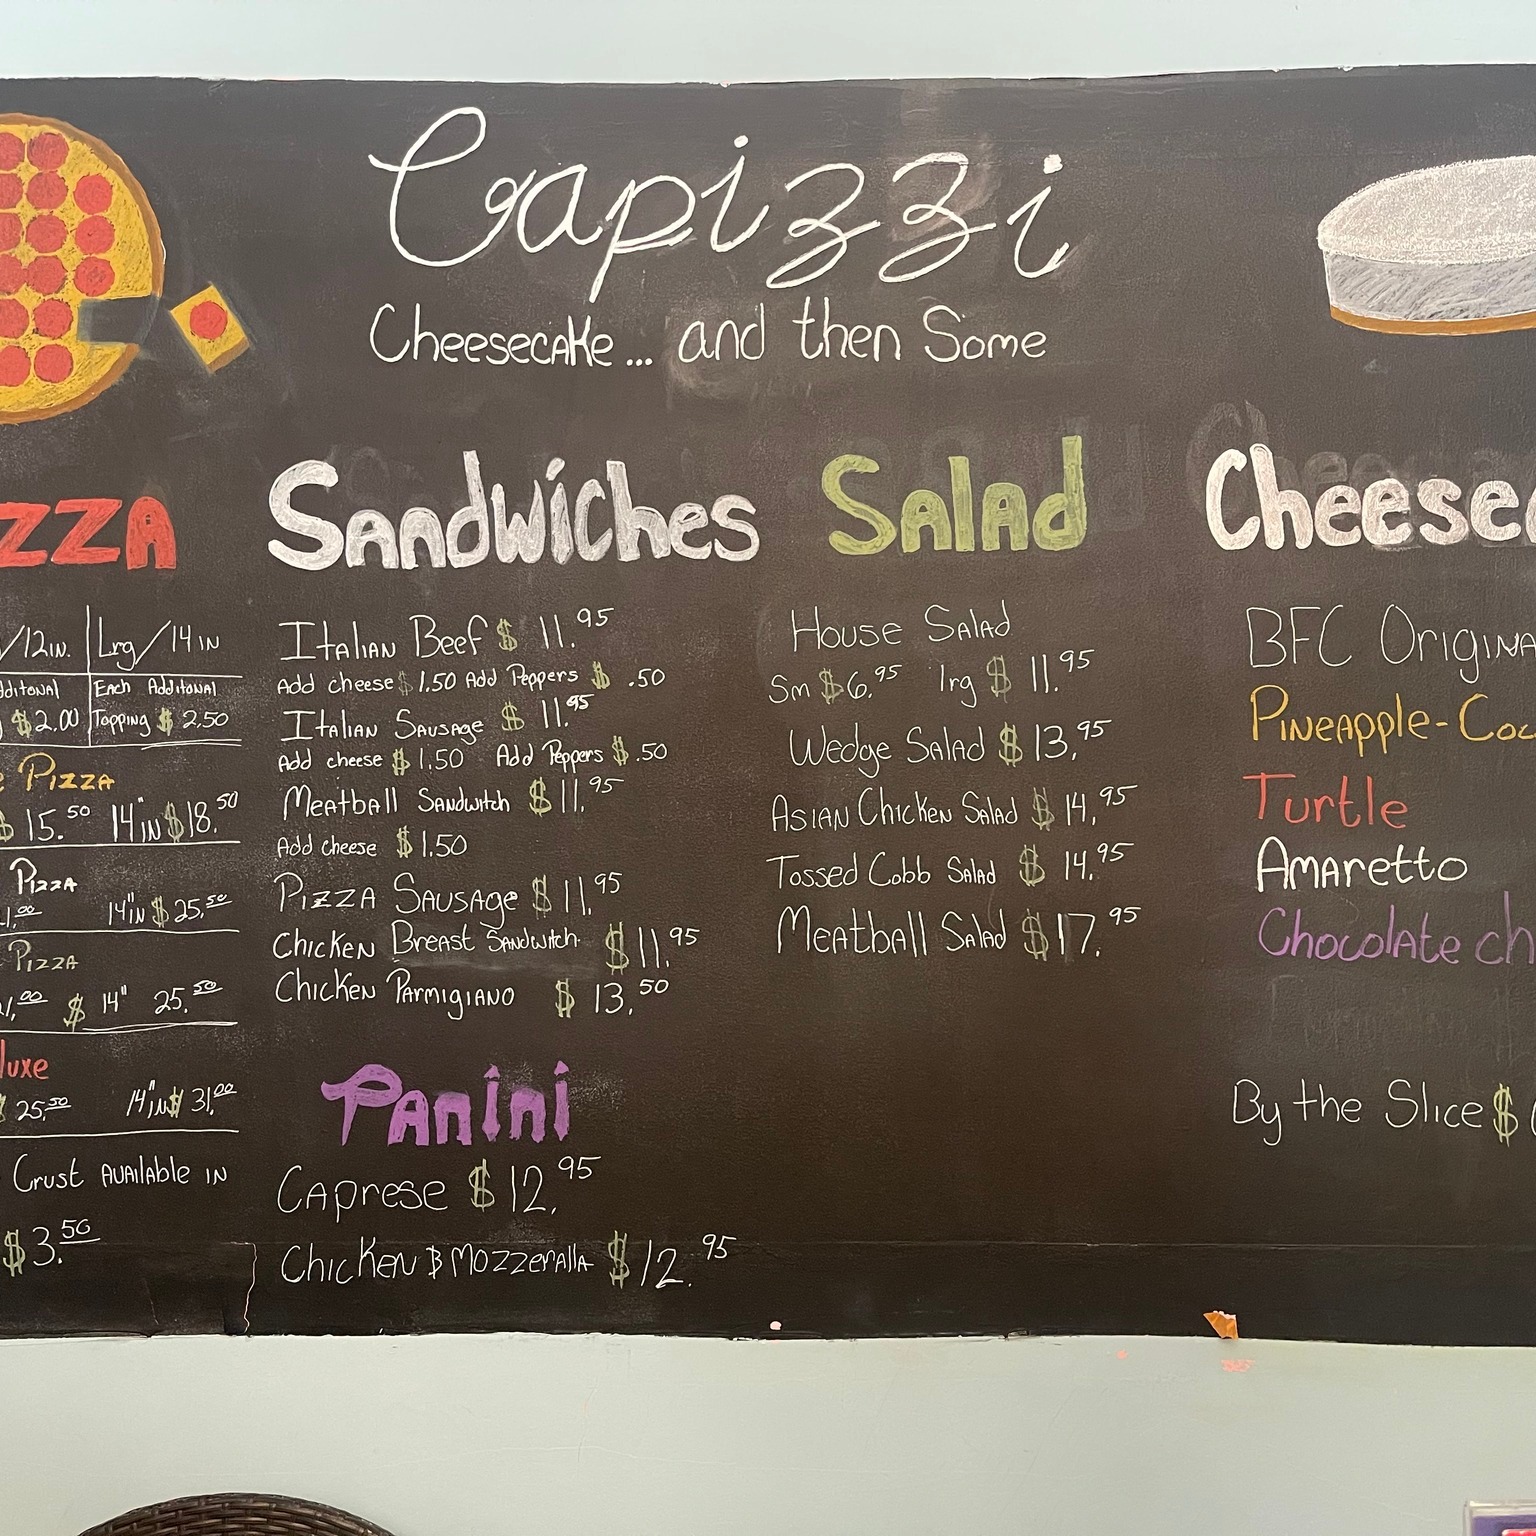 Capizzi
Cheesecake... and then Some
zza
/12in. | Lrg/14in
dditonal | Each Additonal
$2.00 | Topping $2.50
e Pizza
$15.50 14"in $18.50
Pizza
1.00 14"in $25.50
Pizza
1.00 $ 14" 25.50
luxe
$ 25.50 14"in $31.00
Crust Available in
$3.50
Sandwiches
Italian Beef $11.95
Add cheese $1.50 Add Peppers $ .50
Italian Sausage $11.95
Add cheese $1.50 Add Peppers $.50
Meatball Sandwitch $11.95
Add cheese $1.50
Pizza Sausage $11.95
Chicken Breast Sandwitch $11.95
Chicken Parmigiano $13.50
Panini
Caprese $12.95
Chicken & Mozzeralla $12.95
Salad
House Salad
Sm $6.95 lrg $11.95
Wedge Salad $13.95
Asian Chicken Salad $14.95
Tossed Cobb Salad $14.95
Meatball Salad $17.95
Cheesec
BFC Origina
Pineapple-Coc
Turtle
Amaretto
Chocolate ch
By the Slice $